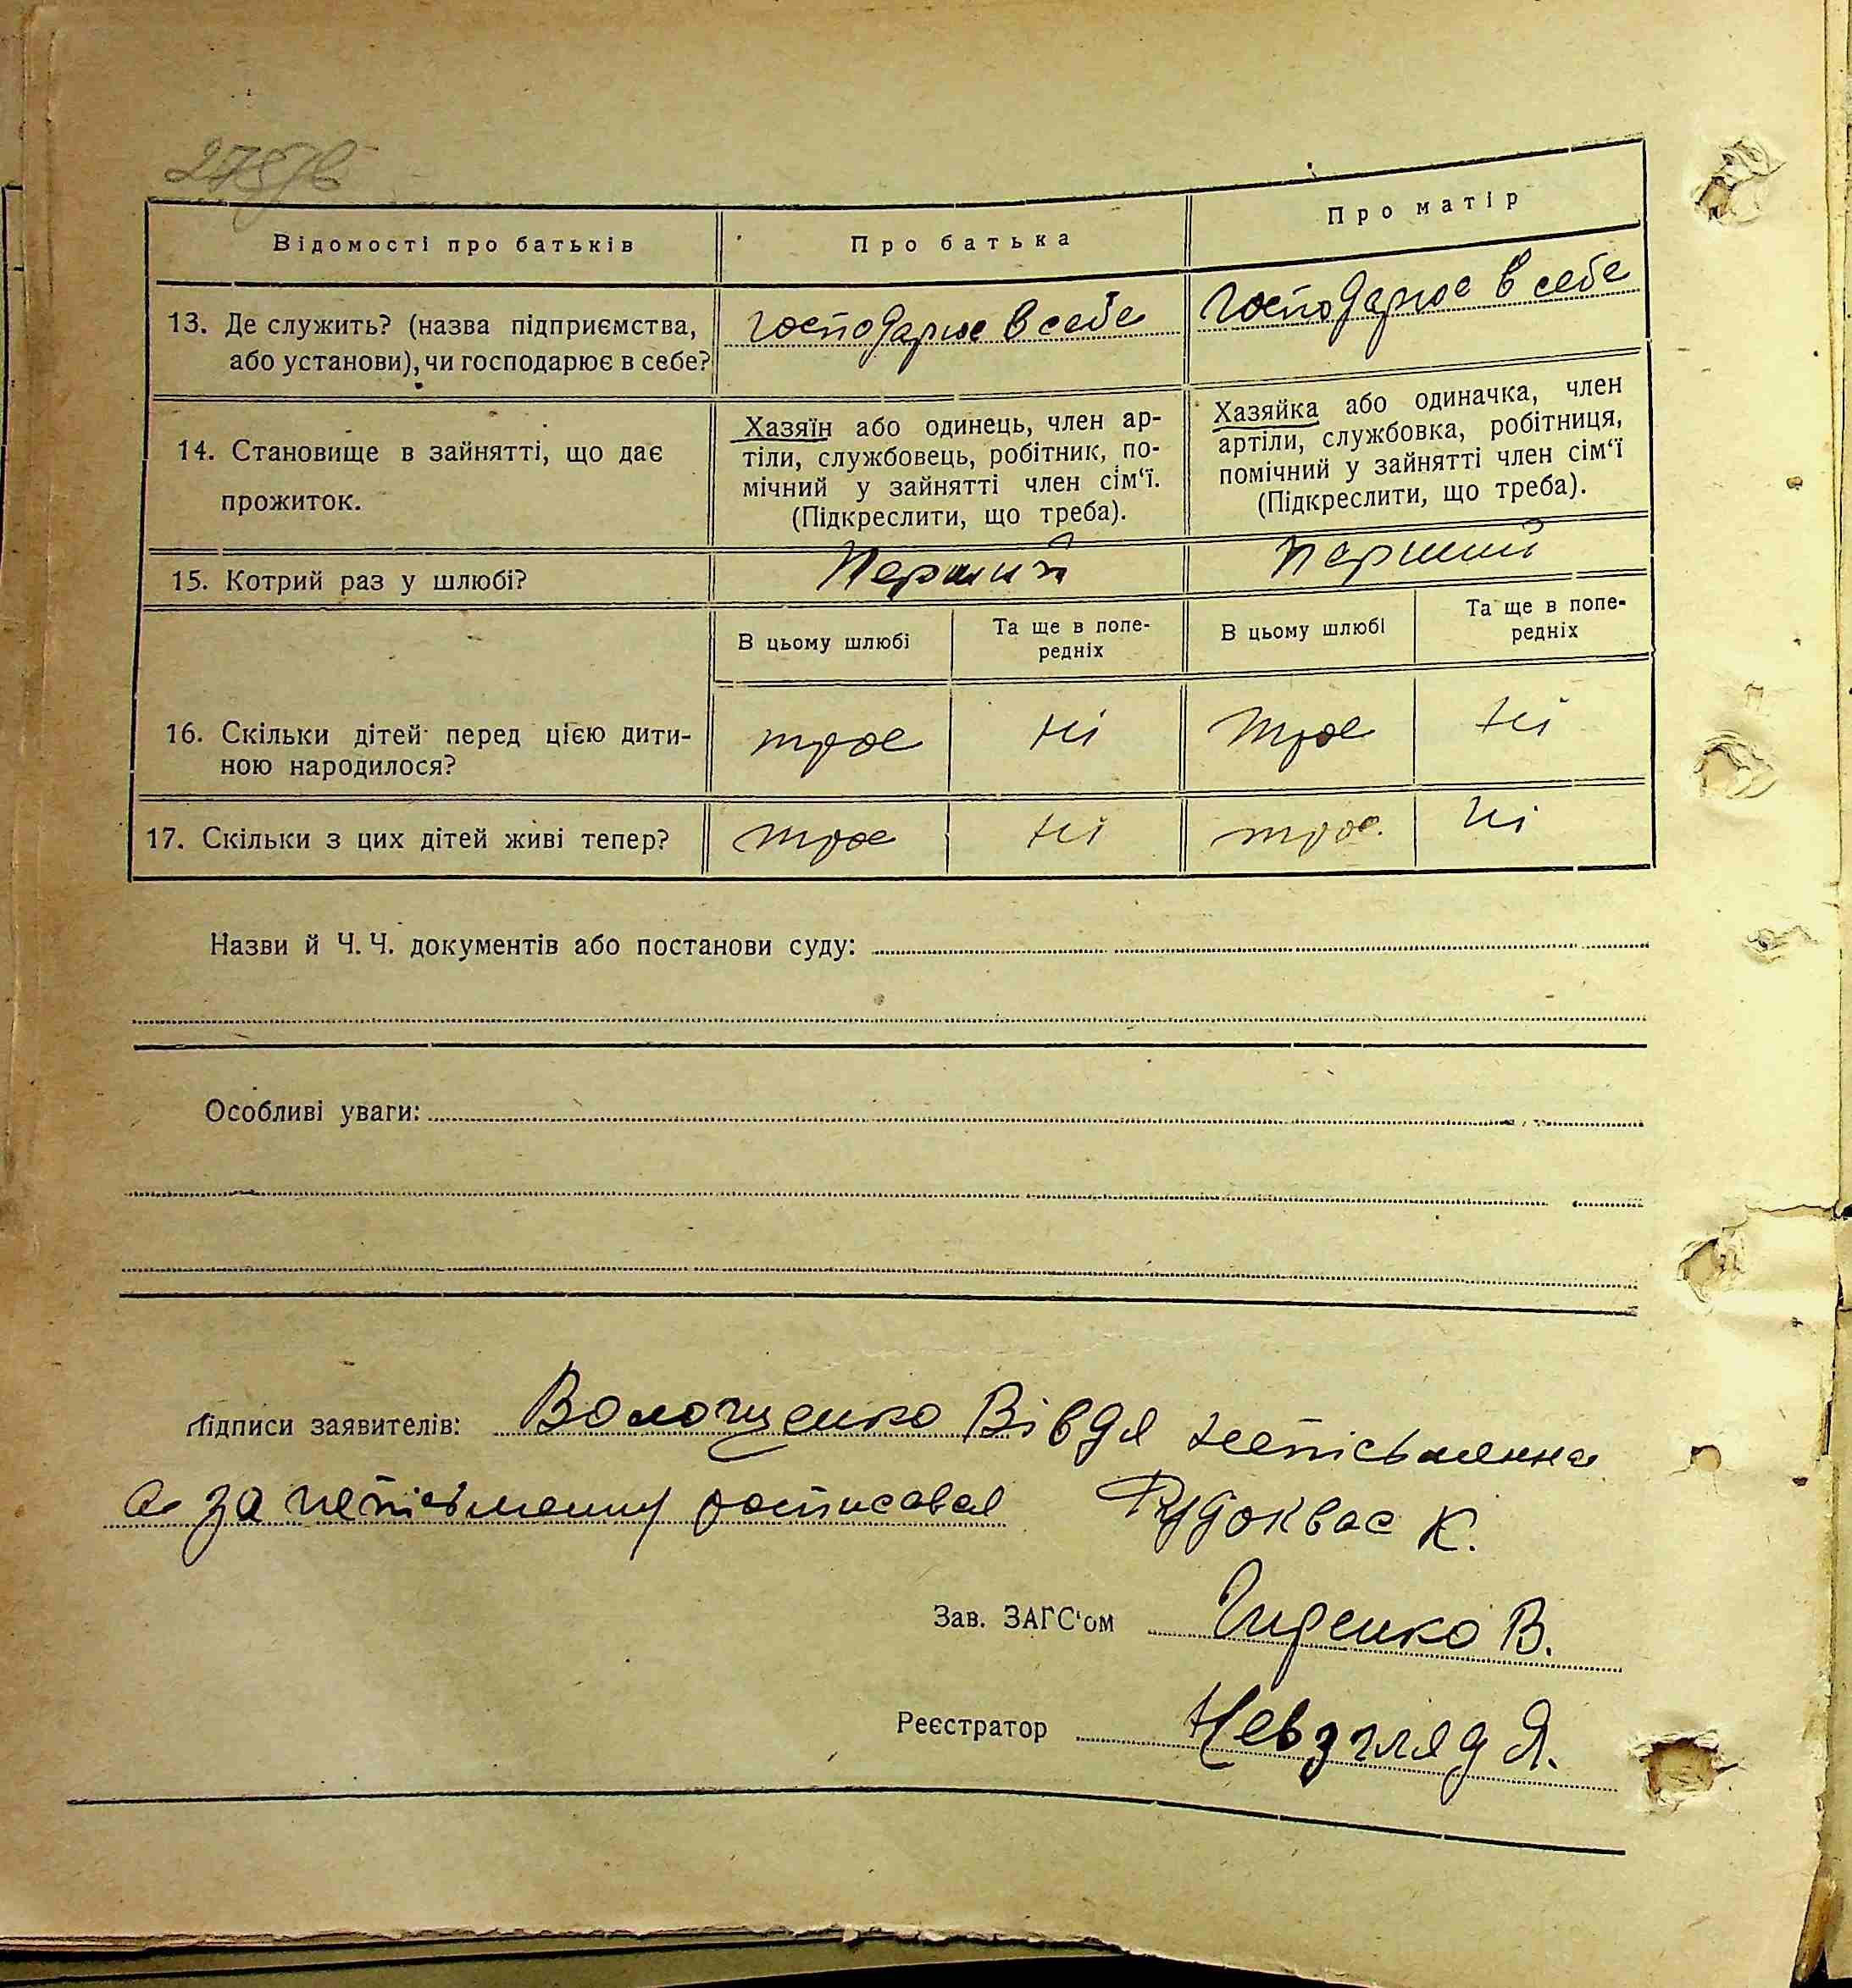 Відомості про батьків
Про батька
Про матір
13. Де служить? (назва підприємства,
або установи), чи господарює в себе?
господарює в себе
господарює в себе
14. Становище в зайнятті, що дає
прожиток.
Хазяїн або одинець, член ар-
тіли, службовець, робітник, по-
мічний у зайнятті член сім‘ї.
(Підкреслити, що треба).
Хазяйка або одиначка, член
артіли, службовка, робітниця,
помічний у зайнятті член сім‘ї
(Підкреслити, що треба).
15. Котрий раз у шлюбі?
Перший
Перший
В цьому шлюбі
Та ще в попе-
редніх
В цьому шлюбі
Та ще в попе-
редніх
16. Скільки дітей перед цією дити-
ною народилося?
троє
ні
троє
ні
17. Скільки з цих дітей живі тепер?
троє
ні
троє.
ні
Назви й Ч. Ч. документів або постанови суду:
Особливі уваги:
Підписи заявителів: Волощенко Вівдя непісьменна
а за непісьменну росписався Рудоквас К.
Зав. ЗАГС‘ом Гиренко В.
Реєстратор Невзгляд Я.